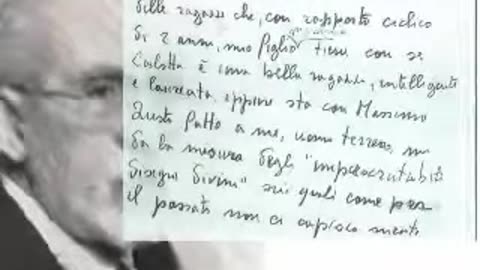 delle ragazze che, con rapporto ciclico
di 2 anni, mio figlio tiene con se
Carlotta è una bella ragazza, intelligente
e laureata, eppure sta con Massimo
Questo fatto a me, uomo terreno, mi
dà la misura degli "imperscrutabili
disegni divini" sui quali come per
il passato non ci capisco niente